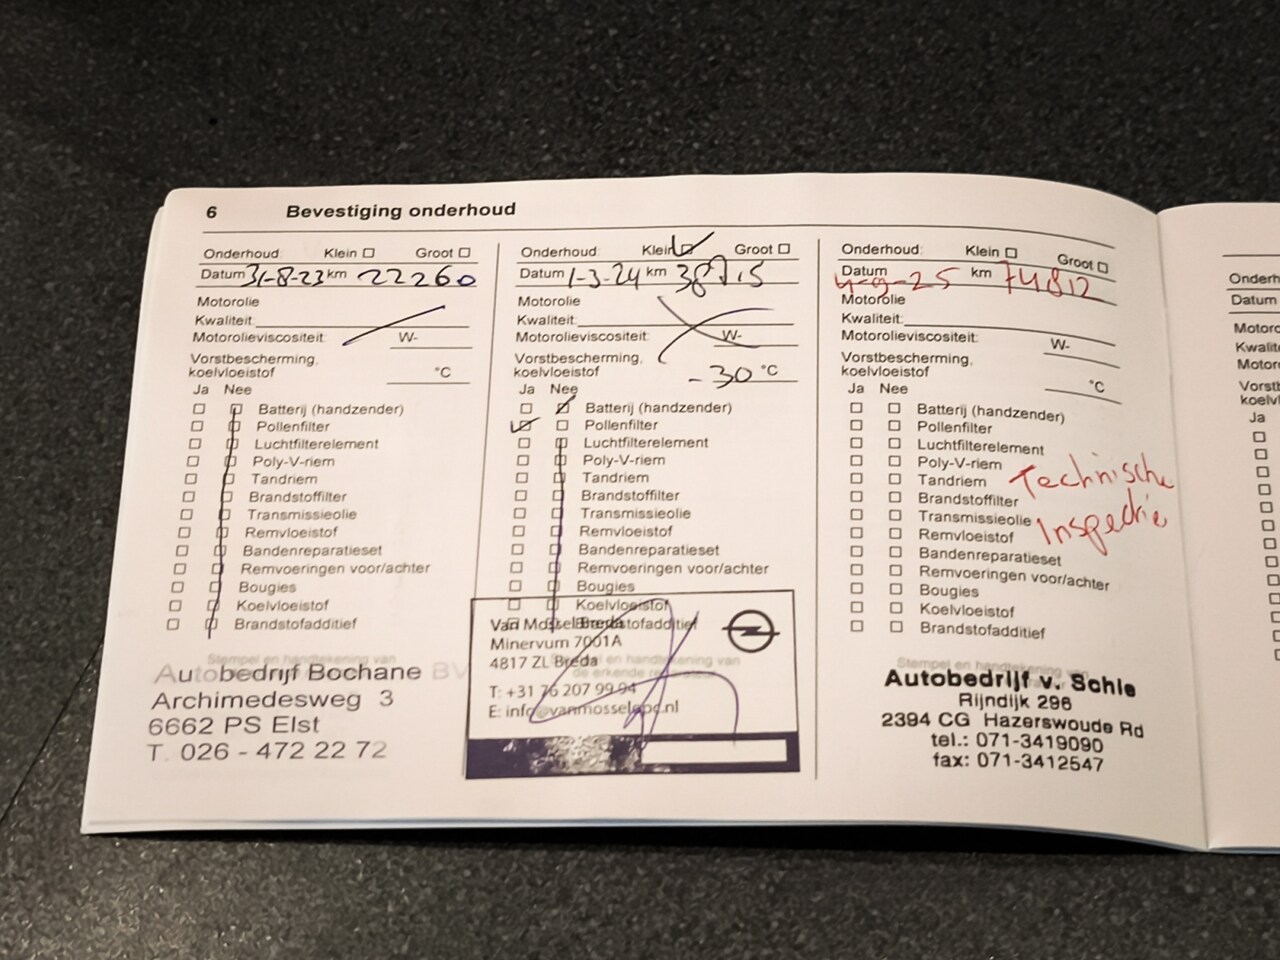 6 Bevestiging onderhoud
Onderhoud: Klein Groot
Datum 31-8-23 km 22260
Motorolie
Kwaliteit:
Motorolieviscositeit: W-
Vorstbescherming,
koelvloeistof °C
Ja Nee
Batterij (handzender)
Pollenfilter
Luchtfilterelement
Poly-V-riem
Tandriem
Brandstoffilter
Transmissieolie
Remvloeistof
Bandenreparatieset
Remvoeringen voor/achter
Bougies
Koelvloeistof
Brandstofadditief
Stempel en handtekening van
Autobedrijf Bochane BV
Archimedesweg 3
6662 PS Elst
T. 026 - 472 22 72
Onderhoud: Klein Groot
Datum 1-3-24 km
Motorolie
Kwaliteit:
Motorolieviscositeit: W-
Vorstbescherming,
koelvloeistof -30 °C
Ja Nee
Batterij (handzender)
Pollenfilter
Luchtfilterelement
Poly-V-riem
Tandriem
Brandstoffilter
Transmissieolie
Remvloeistof
Bandenreparatieset
Remvoeringen voor/achter
Bougies
Koelvloeistof
Brandstofadditief
Stempel en handtekening van
de erkende reparateur
Van Mossel Breda
Minervum 7001A
4817 ZL Breda
T: +31 76 207 99 94
E: info@vanmosselopc.nl
Onderhoud: Klein Groot
Datum 4-9-25 km 74812
Motorolie
Kwaliteit:
Motorolieviscositeit: W-
Vorstbescherming,
koelvloeistof °C
Ja Nee
Batterij (handzender)
Pollenfilter
Luchtfilterelement
Poly-V-riem
Tandriem
Brandstoffilter
Transmissieolie
Remvloeistof
Bandenreparatieset
Remvoeringen voor/achter
Bougies
Koelvloeistof
Brandstofadditief
Technische
Inspectie
Stempel en handtekening van
Autobedrijf v. Schie
Rijndijk 296
2394 CG Hazerswoude Rd
tel.: 071-3419090
fax: 071-3412547
Onderh
Datum
Motoro
Kwalite
Motor
Vorstb
koelvl
Ja